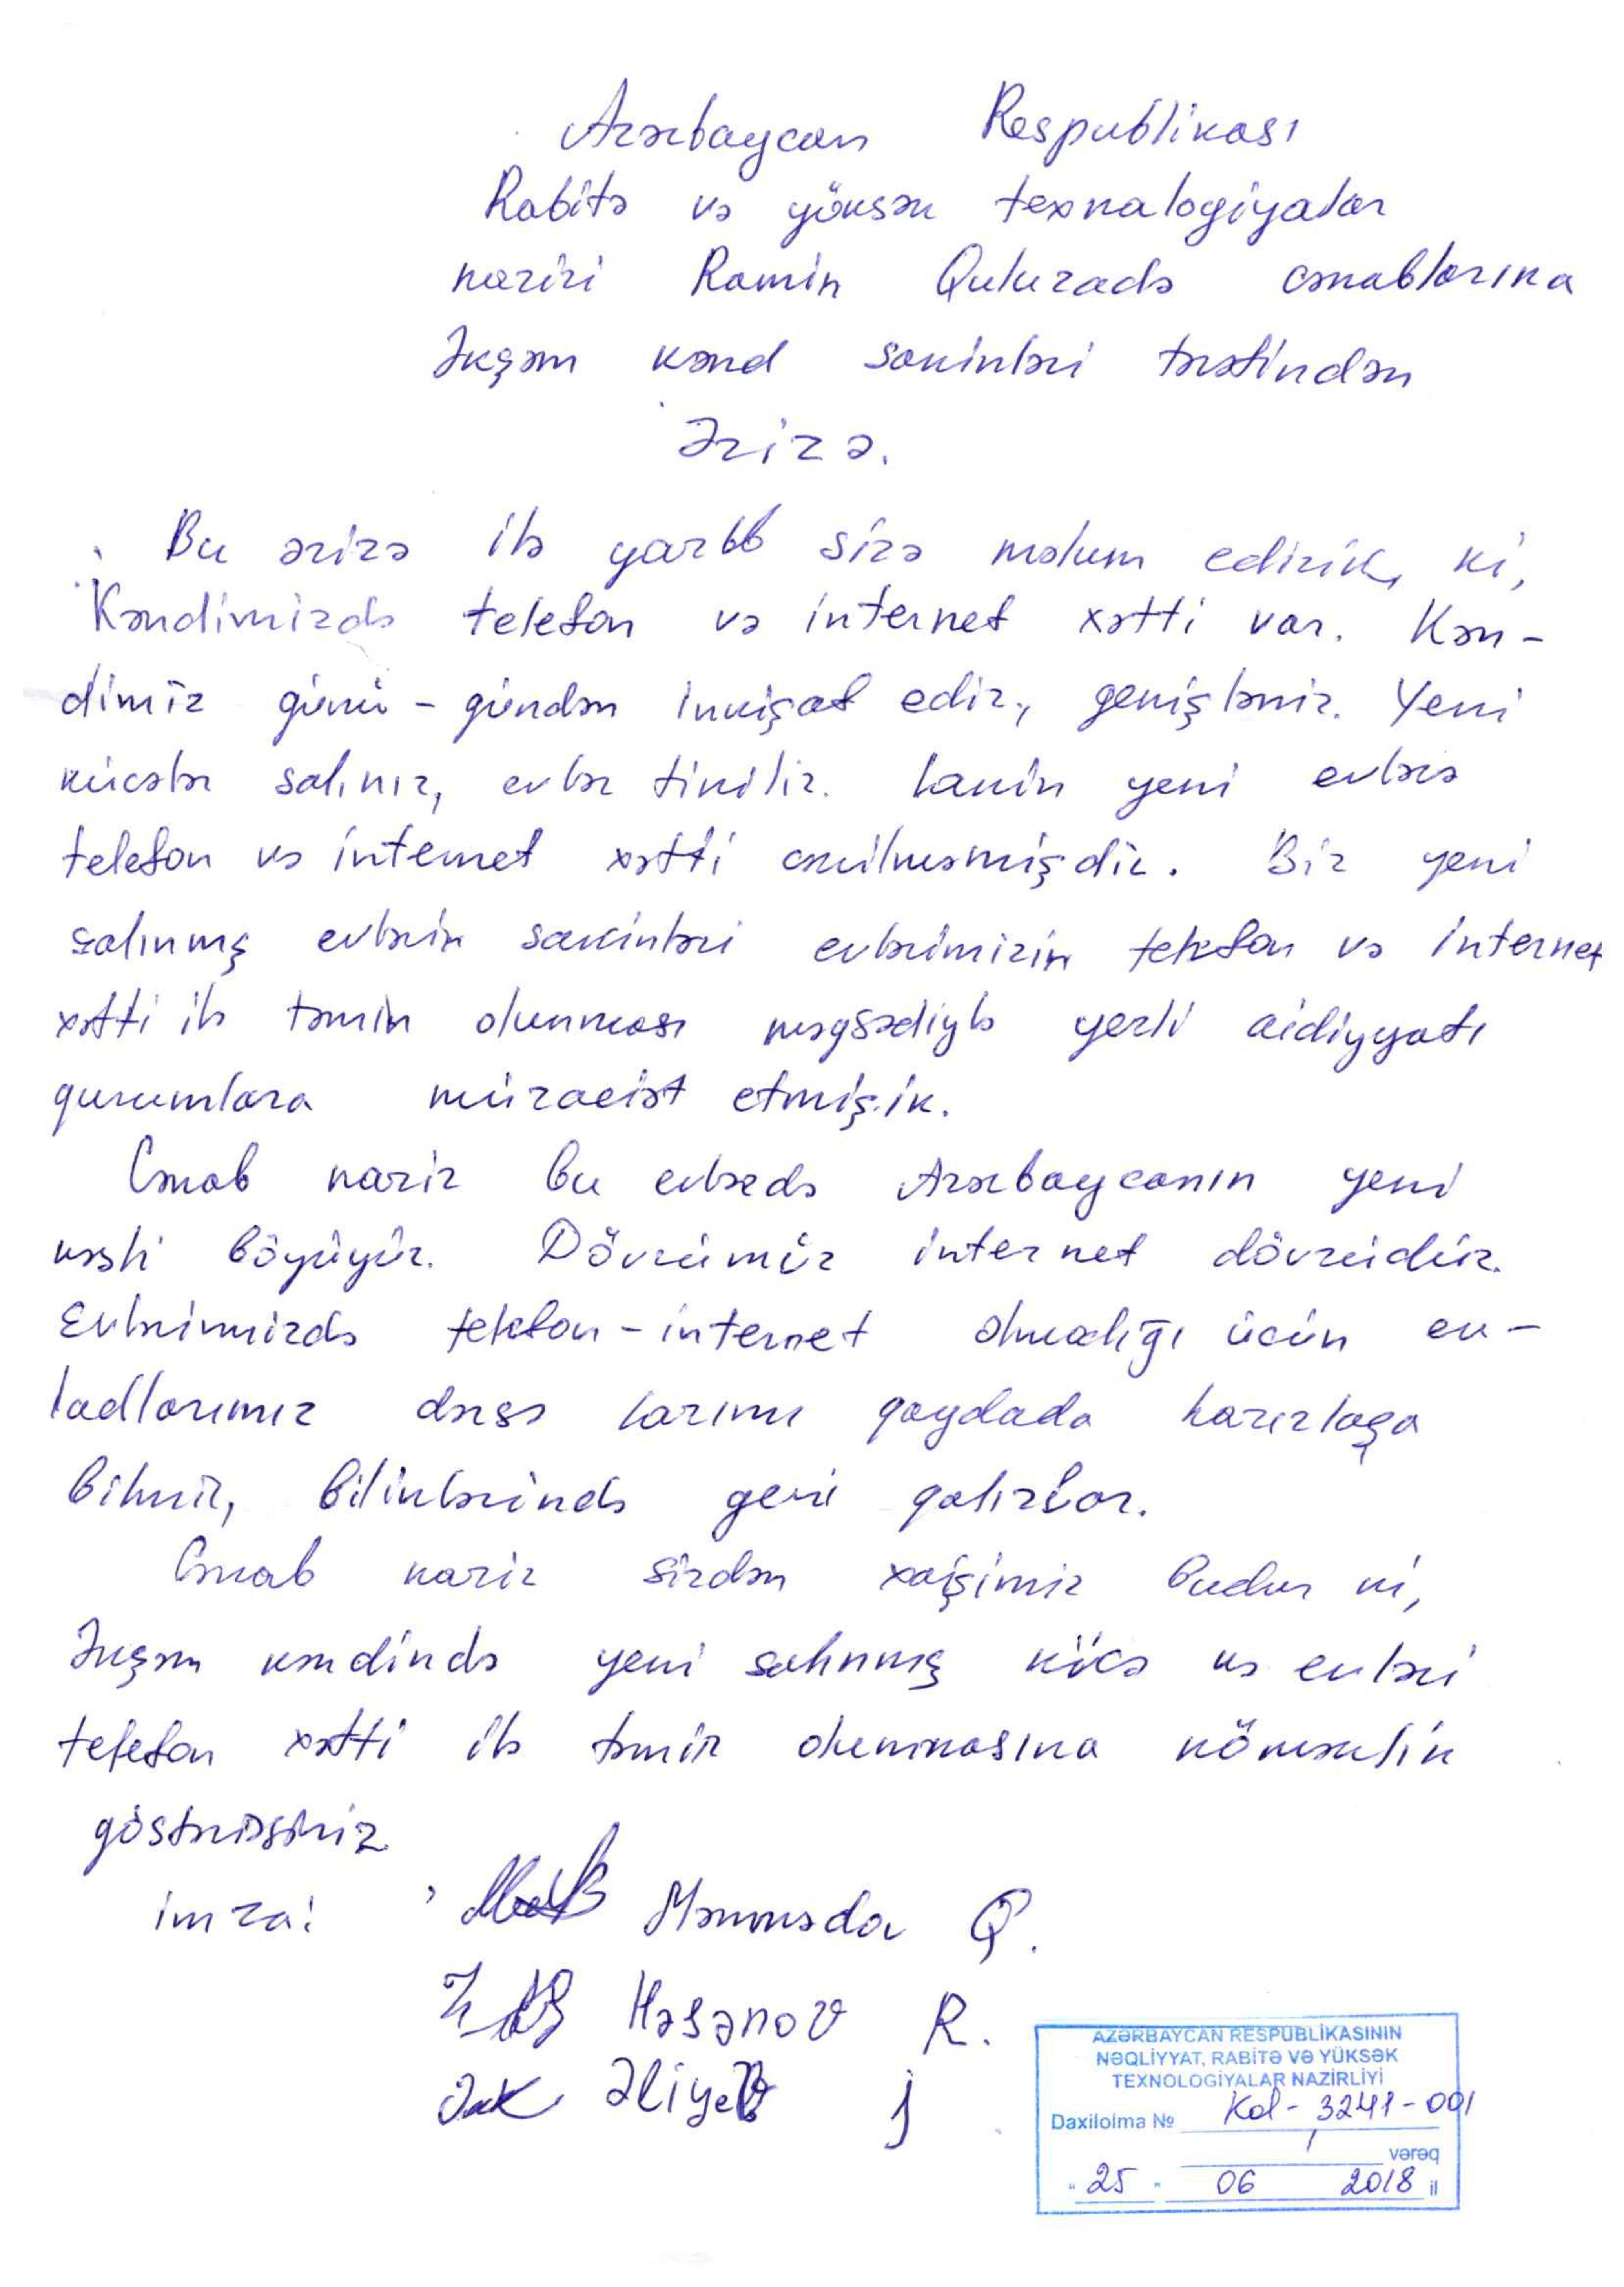 Azərbaycan Respublikası
Rabitə və yüksək texnalogiyalar
naziri Ramin Quluzadə cənablarına
Əkşəm kənd sakinləri tərəfindən
Ərizə.
Bu ərizə ilə yazıb sizə məlum edirik, ki,
Kəndimizdə telefon və internet xətti var. Kən-
dimiz günü-gündən inkişaf edir, genişlənir. Yeni
küçələr salınır, evlər tikilir. Lakin yeni evlərə
telefon və internet xətti çəkilməmişdir. Biz yeni
salınmış evlərin sakinləri evlərimizin telefon və internet
xətti ilə təmin olunması məqsədiylə yerli aidiyyatı
qurumlara müraciət etmişik.
Cənab nazir bu evlərdə Azərbaycanın yeni
nəsli böyüyür. Dövrümüz internet dövrüdür.
Evlərimizdə telefon-internet olmadığı üçün ev-
ladlarımız dərsə lazımı qaydada hazırlaşa
bilmir, bilinlərində geri qalırlar.
Cənab nazir sizdən xaişimiz budur ki,
Əkşəm kəndində yeni salınmış küçə və evləri
telefon xətti ilə təmin olunmasına köməklik
göstərəsiniz
imza:
Məmmədov Q.
Həsənov R.
Əliyev J
AZƏRBAYCAN RESPUBLİKASININ
NƏQLİYYAT, RABİTƏ VƏ YÜKSƏK
TEXNOLOGİYALAR NAZİRLİYİ
Daxilolma № Kol-3241-001
1 vərəq
"25" 06 2018 il